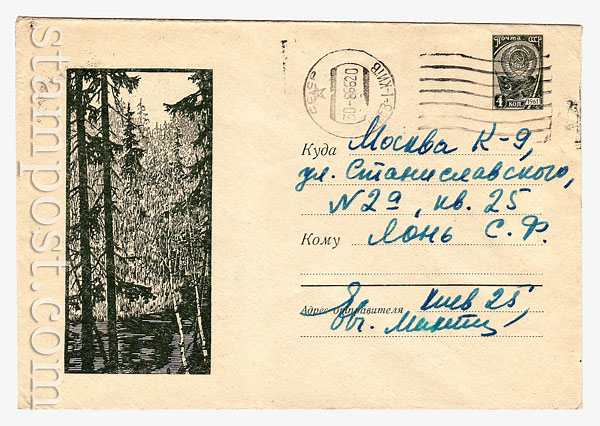 stampost.com
почта СССР
4 коп. 1961
КИЇВ
Куда Москва К-9,
ул. Станиславского,
№29, кв. 25
Кому Лонь С. Ф.
Адрес отправителя Киев 25,